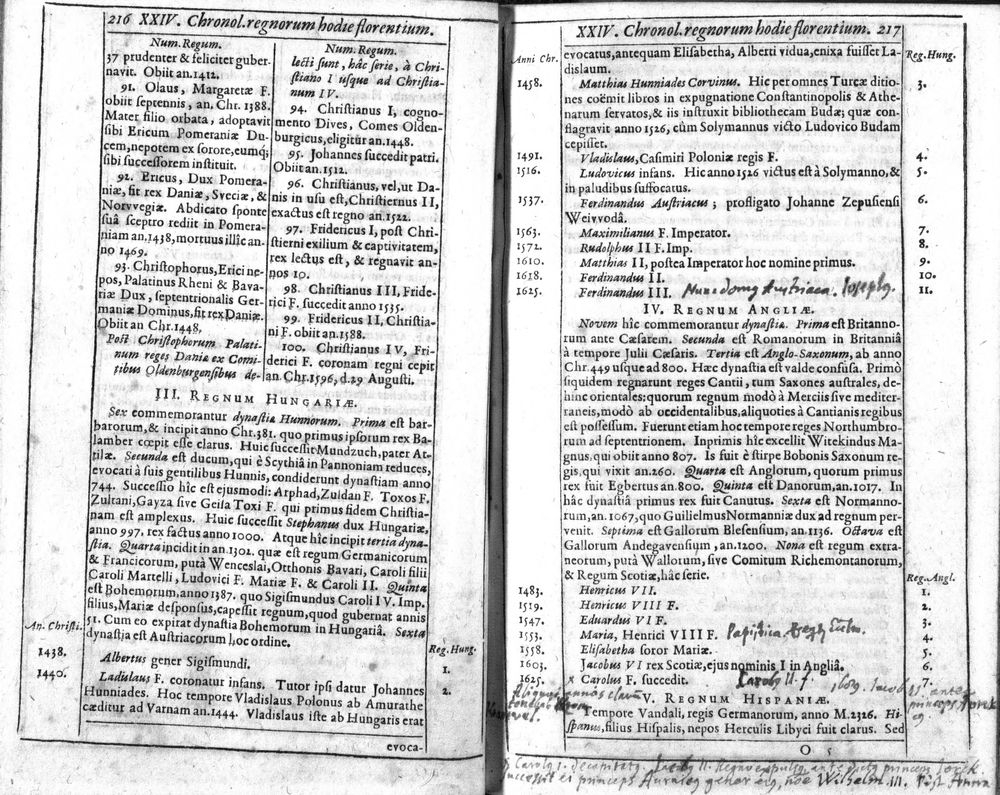 216 XXIV. Chronol. regnorum hodie florentium.
Num. Regum.
37 prudenter & feliciter guber-
navit. Obiit an. 1412.
91. Olaus, Margaretæ F.
obiit septennis, an. Chr. 1388.
Mater filio orbata, adoptavit
sibi Ericum Pomeraniæ Du-
cem, nepotem ex sorore, eumq;
sibi successorem instituit.
92. Ericus, Dux Pomera-
niæ, fit rex Daniæ, Sveciæ, &
Norvvegiæ. Abdicato sponte
suâ sceptro rediit in Pomera-
niam an. 1438, mortuus illîc an-
no 1469.
93. Christophorus, Erici ne-
pos, Palatinus Rheni & Bava-
riæ Dux, septentrionalis Ger-
maniæ Dominus, fit rex Daniæ.
Obiit an Chr. 1448,
Post Christophorum Palati-
num reges Daniæ ex Comi-
tibus Oldenburgensibus de-
Num. Regum.
lecti sunt, hâc serie, à Chri-
stiano I usque ad Christia-
num IV.
94. Christianus I, cogno-
mento Dives, Comes Olden-
burgicus, eligitur an. 1448.
95. Johannes succedit patri.
Obiit an. 1512.
96. Christianus, vel, ut Da-
nis in usu est, Christiernus II,
exactus est regno an. 1522.
97. Fridericus I, post Chri-
stierni exilium & captivitatem,
rex lectus est, & regnavit an-
nos 10.
98. Christianus III, Fride-
rici F. succedit anno 1535.
99. Fridericus II, Christia-
ni F. obiit an. 1588.
100. Christianus IV, Fri-
derici F. coronam regni cepit
an. Chr. 1596, d. 29 Augusti.
III. REGNUM HUNGARIÆ.
Sex commemorantur dynastiæ Hunnorum. Prima est bar-
barorum, & incipit anno Chr. 381. quo primus ipsorum rex Ba-
lamber cœpit esse clarus. Huic successit Mundzuch, pater At-
tilæ. Secunda est ducum, qui è Scythiâ in Pannoniam reduces,
evocati à suis gentilibus Hunnis, condiderunt dynastiam anno
744. Successio hîc est ejusmodi: Arphad, Zuldan F. Toxos F.
Zultani, Gayza sive Geisa Toxi F. qui primus fidem Christia-
nam est amplexus. Huic successit Stephanus dux Hungariæ,
anno 997, rex factus anno 1000. Atque hîc incipit tertia dyna-
stia. Quarta incidit in an. 1302. quæ est regum Germanicorum
& Francicorum, putà Wenceslai, Otthonis Bavari, Caroli filii
Caroli Martelli, Ludovici F. Mariæ F. & Caroli II. Quinta
est Bohemorum, anno 1387. quo Sigismundus Caroli IV. Imp.
filius, Mariæ desponsus, capessit regnum, quod gubernat annis
51. Cum eo expirat dynastia Bohemorum in Hungariâ. Sexta
dynastia est Austriacorum hoc ordine.
An. Christi.
Reg. Hung.
1438. Albertus gener Sigismundi. 1.
1440. Ladislaus F. coronatur infans. Tutor ipsi datur Johannes 2.
Hunniades. Hoc tempore Vladislaus Polonus ab Amurathe
cæditur ad Varnam an. 1444. Vladislaus iste ab Hungaris erat
evoca-
XXIV. Chronol. regnorum hodie florentium. 217
Anni Chr.
Reg. Hung.
evocatus, antequam Elisabetha, Alberti vidua, enixa fuisset La-
dislaum.
1458. Matthias Hunniades Corvinus. Hic per omnes Turcæ ditio- 3.
nes coëmit libros in expugnatione Constantinopolis & Athe-
narum servatos, & iis instruxit bibliothecam Budæ; quæ con-
flagravit anno 1526, cùm Solymannus victo Ludovico Budam
cepisset.
1491. Vladislaus, Casimiri Poloniæ regis F. 4.
1516. Ludovicus infans. Hic anno 1526 victus est à Solymanno, & 5.
in paludibus suffocatus.
1537. Ferdinandus Austriacus; profligato Johanne Zepusiensi 6.
Weivvodâ.
1563. Maximilianus F. Imperator. 7.
1572. Rudolphus II F. Imp. 8.
1610. Matthias II, postea Imperator hoc nomine primus. 9.
1618. Ferdinandus II. 10.
1625. Ferdinandus III. Nunc domg Austriaca. Josephg. 11.
IV. REGNUM ANGLIÆ.
Novem hîc commemorantur dynastiæ. Prima est Britanno-
rum ante Cæsarem. Secunda est Romanorum in Britanniâ
à tempore Julii Cæsaris. Tertia est Anglo-Saxonum, ab anno
Chr. 449 usque ad 800. Hæc dynastia est valde confusa. Primò
siquidem regnarunt reges Cantii, tum Saxones australes, de-
hinc orientales: quorum regnum modò à Merciis sive mediter-
raneis, modò ab occidentalibus, aliquoties à Cantianis regibus
est possessum. Fuerunt etiam hoc tempore reges Northumbro-
rum ad septentrionem. Inprimis hîc excellit Witekindus Ma-
gnus, qui obiit anno 807. Is fuit è stirpe Bobonis Saxonum re-
gis, qui vixit an. 260. Quarta est Anglorum, quorum primus
rex fuit Egbertus an. 800. Quinta est Danorum, an. 1017. In
hâc dynastiâ primus rex fuit Canutus. Sexta est Normanno-
rum, an. 1067, quo Guilielmus Normanniæ dux ad regnum per-
venit. Septima est Gallorum Blesensium, an. 1136. Octava est
Gallorum Andegavensium, an. 1200. Nona est regum extra-
neorum, putà Wallorum, sive Comitum Richemontanorum,
& Regum Scotiæ, hâc serie.
Reg. Angl.
1483. Henricus VII. 1.
1519. Henricus VIII F. 2.
1547. Eduardus VI F. 3.
1553. Maria, Henrici VIII F. Papistica 4.
1558. Elisabetha soror Mariæ. 5.
1603. Jacobus VI rex Scotiæ, ejus nominis I in Angliâ. 6.
1625. x Carolus F. succedit. Jacob II. f. 7.
V. REGNUM HISPANIÆ.
Tempore Vandali, regis Germanorum, anno M. 2326. Hi-
spanus, filius Hispalis, nepos Herculis Libyci fuit clarus. Sed
O 5
Wilhelm. III.